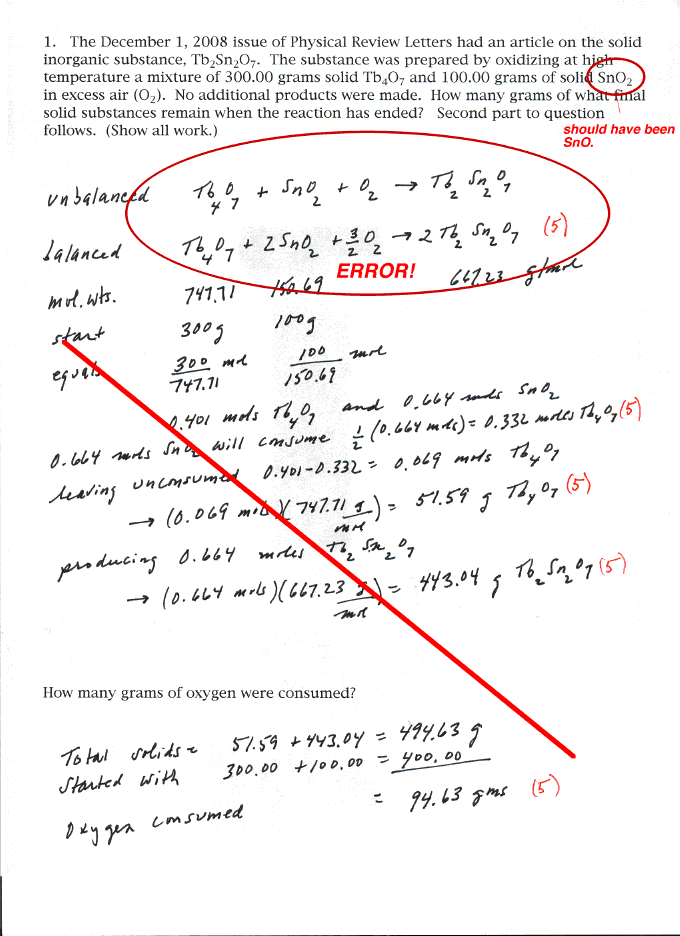 1. The December 1, 2008 issue of Physical Review Letters had an article on the solid
inorganic substance, Tb₂Sn₂O₇. The substance was prepared by oxidizing at high
temperature a mixture of 300.00 grams solid Tb₄O₇ and 100.00 grams of solid SnO₂
in excess air (O₂). No additional products were made. How many grams of what final
solid substances remain when the reaction has ended? Second part to question
follows. (Show all work.)
should have been
SnO.
unbalanced Tb₄O₇ + SnO₂ + O₂ → Tb₂Sn₂O₇
balanced Tb₄O₇ + 2SnO₂ + 3/2 O₂ → 2Tb₂Sn₂O₇ (5)
ERROR!
mol. wts. 747.71 150.69 667.23 g/mol
start 300g 100g
equals 300/747.71 mol 100/150.69 mol
0.401 mols Tb₄O₇ and 0.664 mols SnO₂
0.664 mols SnO₂ will consume 1/2 (0.664 mols) = 0.332 moles Tb₄O₇ (5)
leaving unconsumed 0.401-0.332 = 0.069 mols Tb₄O₇
→ (0.069 mols)(747.71 g/mol) = 51.59 g Tb₄O₇ (5)
producing 0.664 moles Tb₂Sn₂O₇
→ (0.664 mols)(667.23 g/mol) = 443.04 g Tb₂Sn₂O₇ (5)
How many grams of oxygen were consumed?
Total solids = 51.59 + 443.04 = 494.63 g
Started with 300.00 + 100.00 = 400.00
Oxygen consumed = 94.63 gms (5)